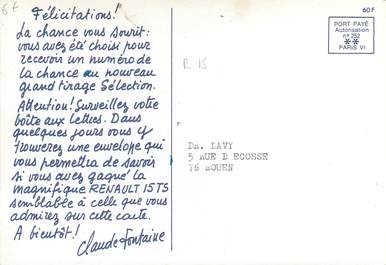 6t
Félicitations!
La chance vous sourit:
vous avez été choisi pour
recevoir un numéro de
la chance au nouveau
grand tirage Sélection.
Attention! Surveillez votre
boîte aux lettres. Dans
quelques jours vous y
trouverez une enveloppe qui
vous permettra de savoir
si vous avez gagné la
magnifique RENAULT 15 TS
semblable à celle que vous
admirez sur cette carte.
A bientôt!
Claude Fontaine
R 15
60 F
PORT PAYÉ
Autorisation
n° 252
PARIS VI
DR. LAVY
5 RUE D ECOSSE
76 ROUEN